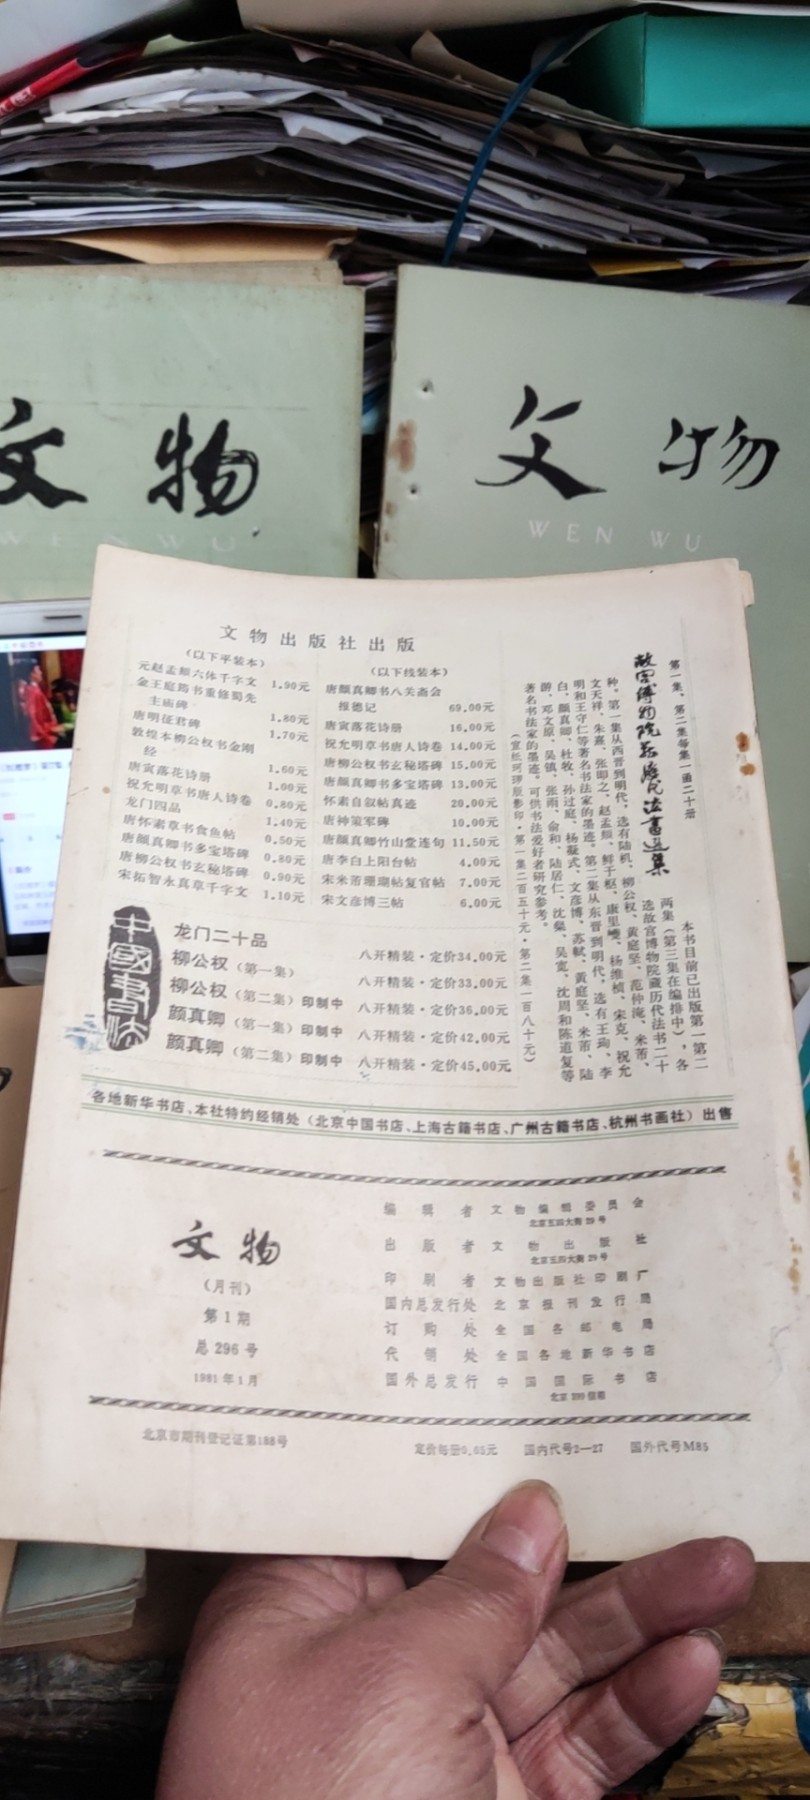 文物
WEN WU
文物
WEN WU
文物出版社出版
（以下平装本）
元赵孟頫六体千字文 1.90元
金王庭筠书重修蜀先
主庙碑 1.80元
唐明征君碑 1.70元
敦煌本柳公权书金刚
经 1.60元
唐寅落花诗册 1.00元
祝允明草书唐人诗卷 0.80元
龙门四品 1.40元
唐怀素草书食鱼帖 0.50元
唐颜真卿书多宝塔碑 0.80元
唐柳公权书玄秘塔碑 0.90元
宋拓智永真草千字文 1.10元
（以下线装本）
唐颜真卿书八关斋会
报德记 69.00元
唐寅落花诗册 16.00元
祝允明草书唐人诗卷 14.00元
唐柳公权书玄秘塔碑 15.00元
唐颜真卿书多宝塔碑 13.00元
怀素自叙帖真迹 20.00元
唐神策军碑 10.00元
唐颜真卿竹山堂连句 11.50元
唐李白上阳台帖 4.00元
宋米芾珊瑚帖复官帖 7.00元
宋文彦博三帖 6.00元
第一集、第二集每集一函二十册
故宫博物院藏历代法书选集
本书目前已出版第一第二
两集（第三集在编排中），各
选故宫博物院藏历代法书二十
种。第一集从西晋到明代，选有陆机、柳公权、黄庭坚、范仲淹、米芾、
文天祥、朱熹、张即之、赵孟頫、鲜于枢、康里巎、杨维桢、宋克、祝允
明和王守仁等著名书法家的墨迹。第二集从东晋到明代，选有王珣、李
白、颜真卿、杜牧、孙过庭、杨凝式、文彦博、苏轼、黄庭坚、米芾、陆
游、邓文原、吴镇、张雨、俞和、陆居仁、沈粲、吴宽、沈周和陈道复等
著名书法家的墨迹。可供书法爱好者研究参考。
（宣纸珂珞版影印·第一集二百五十元·第二集一百八十元）
中國书法
龙门二十品 八开精装·定价34.00元
柳公权（第一集） 八开精装·定价33.00元
柳公权（第二集）印制中 八开精装·定价36.00元
颜真卿（第一集）印制中 八开精装·定价42.00元
颜真卿（第二集）印制中 八开精装·定价45.00元
各地新华书店、本社特约经销处（北京中国书店、上海古籍书店、广州古籍书店、杭州书画社）出售
文物
（月刊）
第1期
总296号
1981年1月
编辑者 文物编辑委员会
北京五四大街29号
出版者 文物出版社
北京五四大街29号
印刷者 文物出版社印刷厂
国内总发行处 北京报刊发行局
订购处 全国各邮电局
代销处 全国各地新华书店
国外总发行 中国国际书店
北京399信箱
北京市期刊登记证第188号
定价每册0.65元 国内代号2—27 国外代号M85